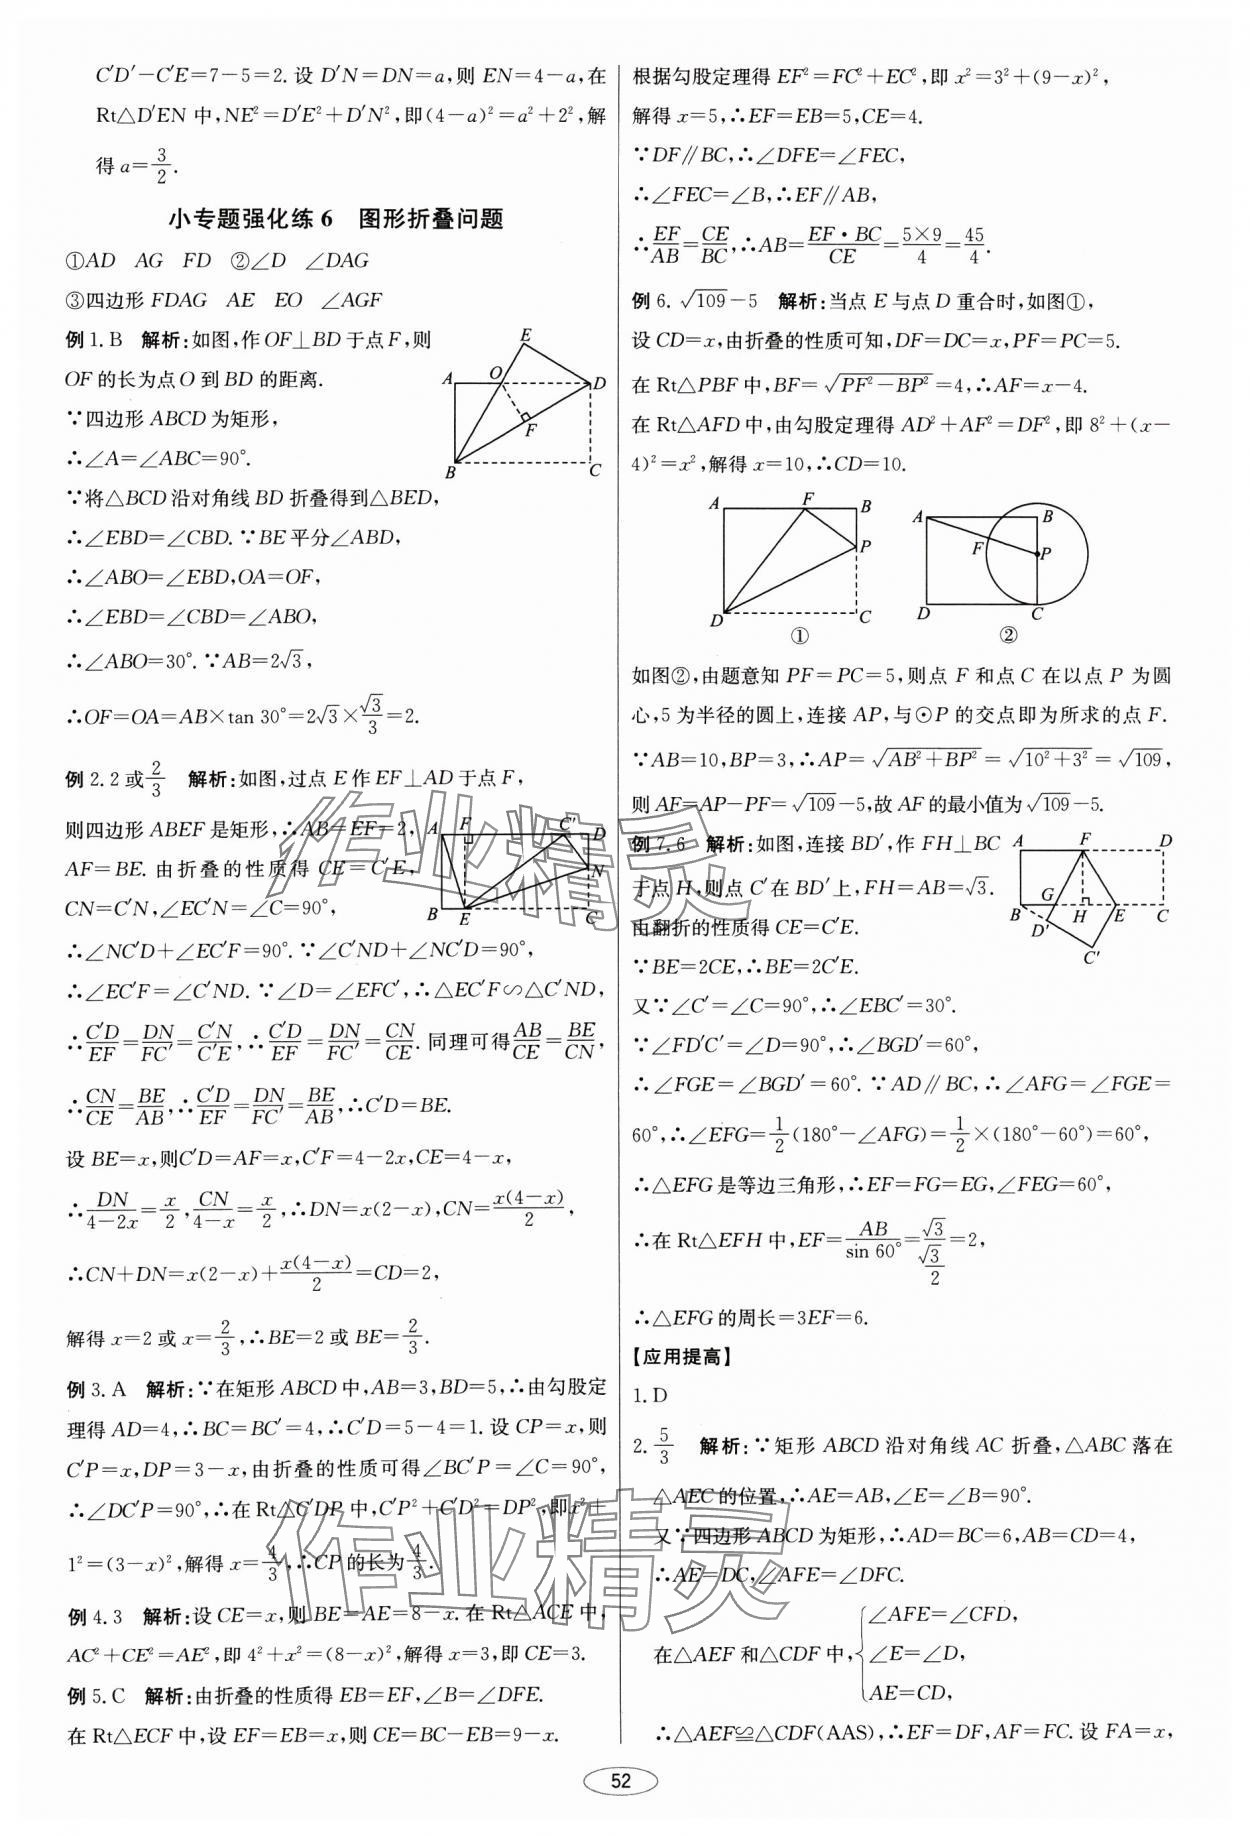 C′D′－C′E＝7－5＝2. 设 D′N＝DN＝a,则 EN＝4－a,在
Rt△D′EN 中,NE²＝D′E²＋D′N²,即(4－a)²＝a²＋2²,解
得 a＝3/2.
小专题强化练 6　图形折叠问题
①AD　AG　FD　②∠D　∠DAG
③四边形 FDAG　AE　EO　∠AGF
例 1. B　解析:如图,作 OF⊥BD 于点 F,则
OF 的长为点 O 到 BD 的距离.
∵四边形 ABCD 为矩形,
∴∠A＝∠ABC＝90°.
∵将△BCD 沿对角线 BD 折叠得到△BED,
∴∠EBD＝∠CBD. ∵BE 平分∠ABD,
∴∠ABO＝∠EBD,OA＝OF,
∴∠EBD＝∠CBD＝∠ABO,
∴∠ABO＝30°. ∵AB＝2√3,
∴OF＝OA＝AB×tan 30°＝2√3×√3/3＝2.
A O E D F B C
例 2. 2 或 2/3　解析:如图,过点 E 作 EF⊥AD 于点 F,
则四边形 ABEF 是矩形,∴AB＝EF＝2,
AF＝BE. 由折叠的性质得 CE＝C′E,
CN＝C′N,∠EC′N＝∠C＝90°,
A F C′ D N B E C
∴∠NC′D＋∠EC′F＝90°. ∵∠C′ND＋∠NC′D＝90°,
∴∠EC′F＝∠C′ND. ∵∠D＝∠EFC′,∴△EC′F∽△C′ND,
∴C′D/EF＝DN/FC′＝C′N/C′E,∴C′D/EF＝DN/FC′＝CN/CE. 同理可得AB/CE＝BE/CN,
∴CN/CE＝BE/AB,∴C′D/EF＝DN/FC′＝BE/AB,∴C′D＝BE.
设 BE＝x,则C′D＝AF＝x,C′F＝4－2x,CE＝4－x,
∴DN/(4－2x)＝x/2,CN/(4－x)＝x/2,∴DN＝x(2－x),CN＝x(4－x)/2,
∴CN＋DN＝x(2－x)＋x(4－x)/2＝CD＝2,
解得 x＝2 或 x＝2/3,∴BE＝2 或 BE＝2/3.
例 3. A　解析:∵在矩形 ABCD 中,AB＝3,BD＝5,∴由勾股定
理得 AD＝4,∴BC＝BC′＝4,∴C′D＝5－4＝1. 设 CP＝x,则
C′P＝x,DP＝3－x,由折叠的性质可得∠BC′P＝∠C＝90°,
∴∠DC′P＝90°,∴在 Rt△C′DP 中,C′P²＋C′D²＝DP²,即x²＋
1²＝(3－x)²,解得 x＝4/3,∴CP 的长为4/3.
例 4. 3　解析:设 CE＝x,则 BE＝AE＝8－x. 在 Rt△ACE 中,
AC²＋CE²＝AE²,即 4²＋x²＝(8－x)²,解得 x＝3,即 CE＝3.
例 5. C　解析:由折叠的性质得 EB＝EF,∠B＝∠DFE.
在 Rt△ECF 中,设 EF＝EB＝x,则 CE＝BC－EB＝9－x.
根据勾股定理得 EF²＝FC²＋EC²,即 x²＝3²＋(9－x)²,
解得 x＝5,∴EF＝EB＝5,CE＝4.
∵DF∥BC,∴∠DFE＝∠FEC,
∴∠FEC＝∠B,∴EF∥AB,
∴EF/AB＝CE/BC,∴AB＝EF·BC/CE＝5×9/4＝45/4.
例 6. √109－5　解析:当点 E 与点 D 重合时,如图①,
设 CD＝x,由折叠的性质可知,DF＝DC＝x,PF＝PC＝5.
在 Rt△PBF 中,BF＝√(PF²－BP²)＝4,∴AF＝x－4.
在 Rt△AFD 中,由勾股定理得 AD²＋AF²＝DF²,即 8²＋(x－
4)²＝x²,解得 x＝10,∴CD＝10.
A F B P D C ①
A B F P D C ②
如图②,由题意知 PF＝PC＝5,则点 F 和点 C 在以点 P 为圆
心,5 为半径的圆上,连接 AP,与⊙P 的交点即为所求的点 F.
∵AB＝10,BP＝3,∴AP＝√(AB²＋BP²)＝√(10²＋3²)＝√109,
则 AF＝AP－PF＝√109－5,故 AF 的最小值为√109－5.
例 7. 6　解析:如图,连接 BD′,作 FH⊥BC
于点 H,则点 C′在 BD′上,FH＝AB＝√3.
由翻折的性质得 CE＝C′E.
∵BE＝2CE,∴BE＝2C′E.
A F D G B H E C D′ C′
又∵∠C′＝∠C＝90°,∴∠EBC′＝30°.
∵∠FD′C′＝∠D＝90°,∴∠BGD′＝60°,
∴∠FGE＝∠BGD′＝60°. ∵AD∥BC,∴∠AFG＝∠FGE＝
60°,∴∠EFG＝1/2(180°－∠AFG)＝1/2×(180°－60°)＝60°,
∴△EFG 是等边三角形,∴EF＝FG＝EG,∠FEG＝60°,
∴在 Rt△EFH 中,EF＝AB/sin 60°＝√3/(√3/2)＝2,
∴△EFG 的周长＝3EF＝6.
【应用提高】
1. D
2. 5/3　解析:∵矩形 ABCD 沿对角线 AC 折叠,△ABC 落在
△AEC 的位置,∴AE＝AB,∠E＝∠B＝90°.
又∵四边形 ABCD 为矩形,∴AD＝BC＝6,AB＝CD＝4,
∴AE＝DC,∠AFE＝∠DFC.
在△AEF 和△CDF 中,{∠AFE＝∠CFD,
∠E＝∠D,
AE＝CD,
∴△AEF≌△CDF(AAS),∴EF＝DF,AF＝FC. 设 FA＝x,
52
作业精灵
作业精灵